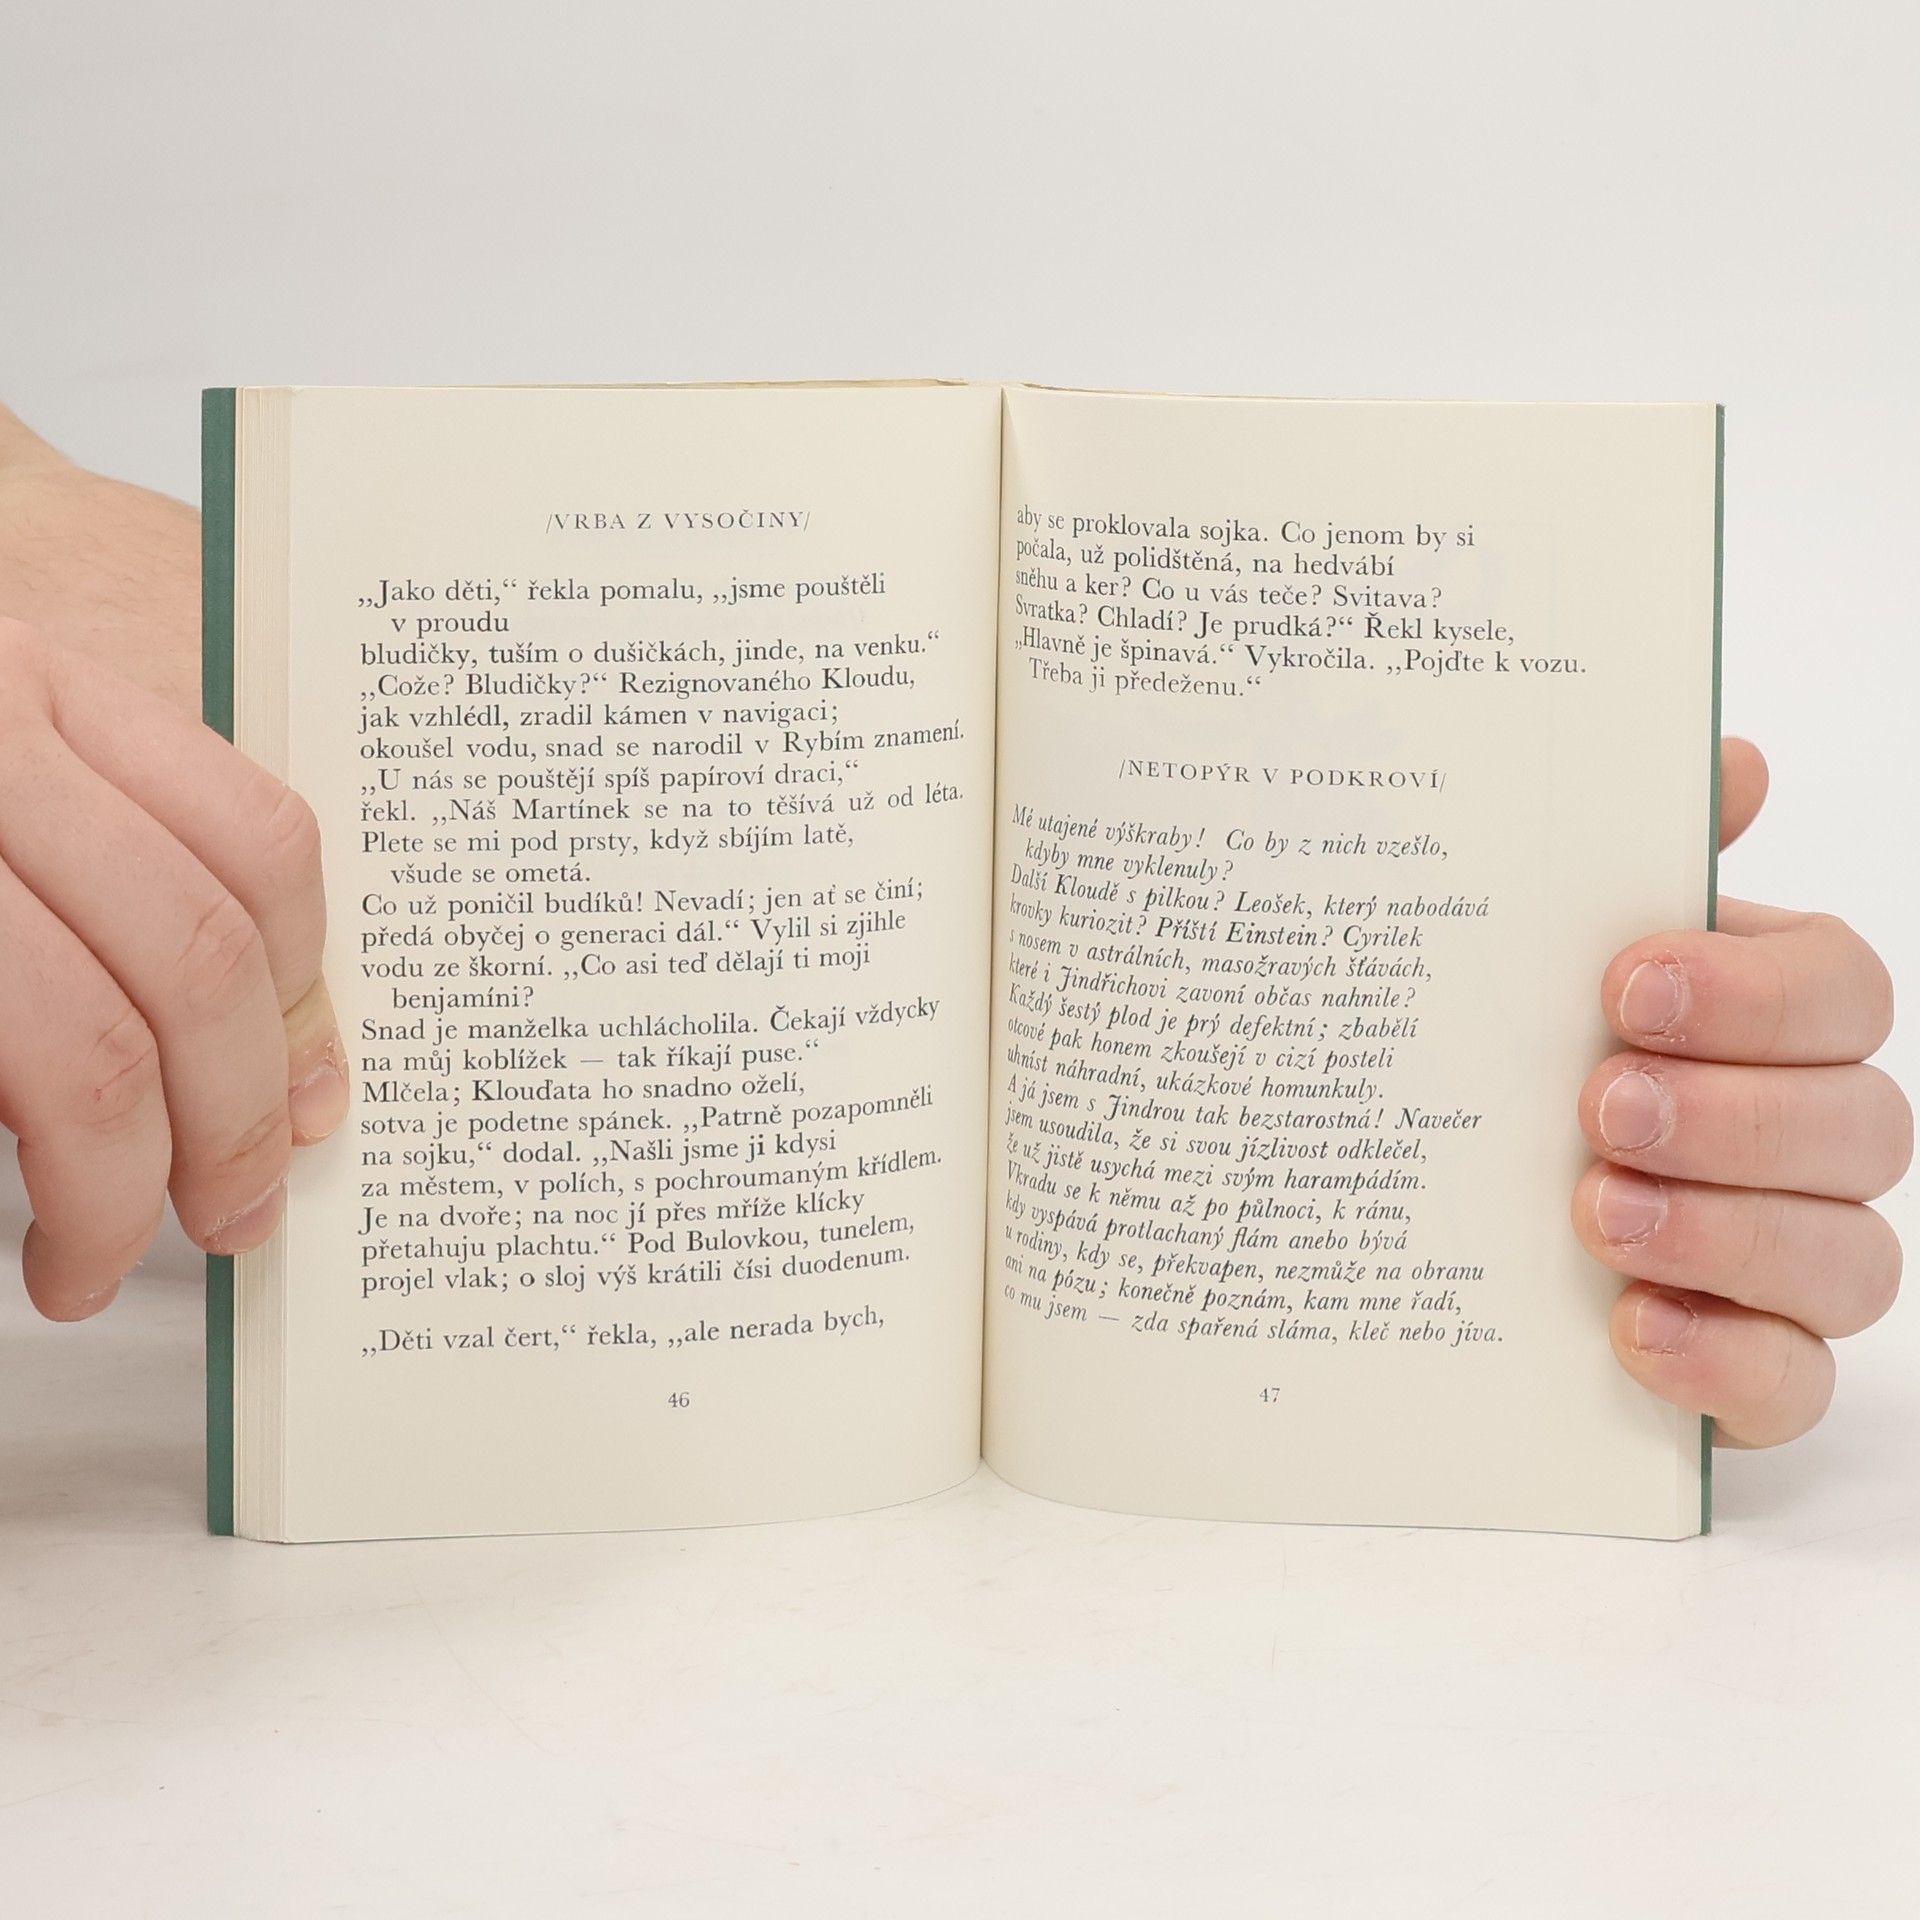 /VRBA Z VYSOČINY/
„Jako děti,“ řekla pomalu, „jsme pouštěli
v proudu
bludičky, tuším o dušičkách, jinde, na venku.“
„Cože? Bludičky?“ Rezignovaného Kloudu,
jak vzhlédl, zradil kámen v navigaci;
okoušel vodu, snad se narodil v Rybím znamení.
„U nás se pouštějí spíš papíroví draci,“
řekl. „Náš Martínek se na to těšívá už od léta.
Plete se mi pod prsty, když sbíjím latě,
všude se ometá.
Co už poničil budíků! Nevadí; jen ať se činí;
předá obyčej o generaci dál.“ Vylil si zjihle
vodu ze škorní. „Co asi teď dělají ti moji
benjamíni?
Snad je manželka uchlácholila. Čekají vždycky
na můj koblížek — tak říkají puse.“
Mlčela; Klouďata ho snadno oželí,
sotva je podetne spánek. „Patrně pozapomněli
na sojku,“ dodal. „Našli jsme ji kdysi
za městem, v polích, s pochroumaným křídlem.
Je na dvoře; na noc jí přes mříže klícky
přetahuju plachtu.“ Pod Bulovkou, tunelem,
projel vlak; o sloj výš krátili čísi duodenum.
„Děti vzal čert,“ řekla, „ale nerada bych,
46
aby se proklovala sojka. Co jenom by si
počala, už polidštěná, na hedvábí
sněhu a ker? Co u vás teče? Svitava?
Svratka? Chladí? Je prudká?“ Řekl kysele,
„Hlavně je špinavá.“ Vykročila. „Pojďte k vozu.
Třeba ji předeženu.“
/NETOPÝR V PODKROVÍ/
Mé utajené výškraby! Co by z nich vzešlo,
kdyby mne vyklenuly?
Další Kloudě s pilkou? Leošek, který nabodává
krovky kuriozit? Příští Einstein? Cyrilek
s nosem v astrálních, masožravých šťávách,
které i Jindřichovi zavoní občas nahnile?
Každý šestý plod je prý defektní; zbabělí
otcové pak honem zkoušejí v cizí posteli
uhníst náhradní, ukázkové homunkuly.
A já jsem s Jindrou tak bezstarostná! Navečer
jsem usoudila, že si svou jízlivost odklečel,
že už jistě usychá mezi svým harampádím.
Vkradu se k němu až po půlnoci, k ránu,
kdy vyspává protlachaný flám anebo bývá
u rodiny, kdy se, překvapen, nezmůže na obranu
ani na pózu; konečně poznám, kam mne řadí,
co mu jsem — zda spařená sláma, kleč nebo jíva.
47